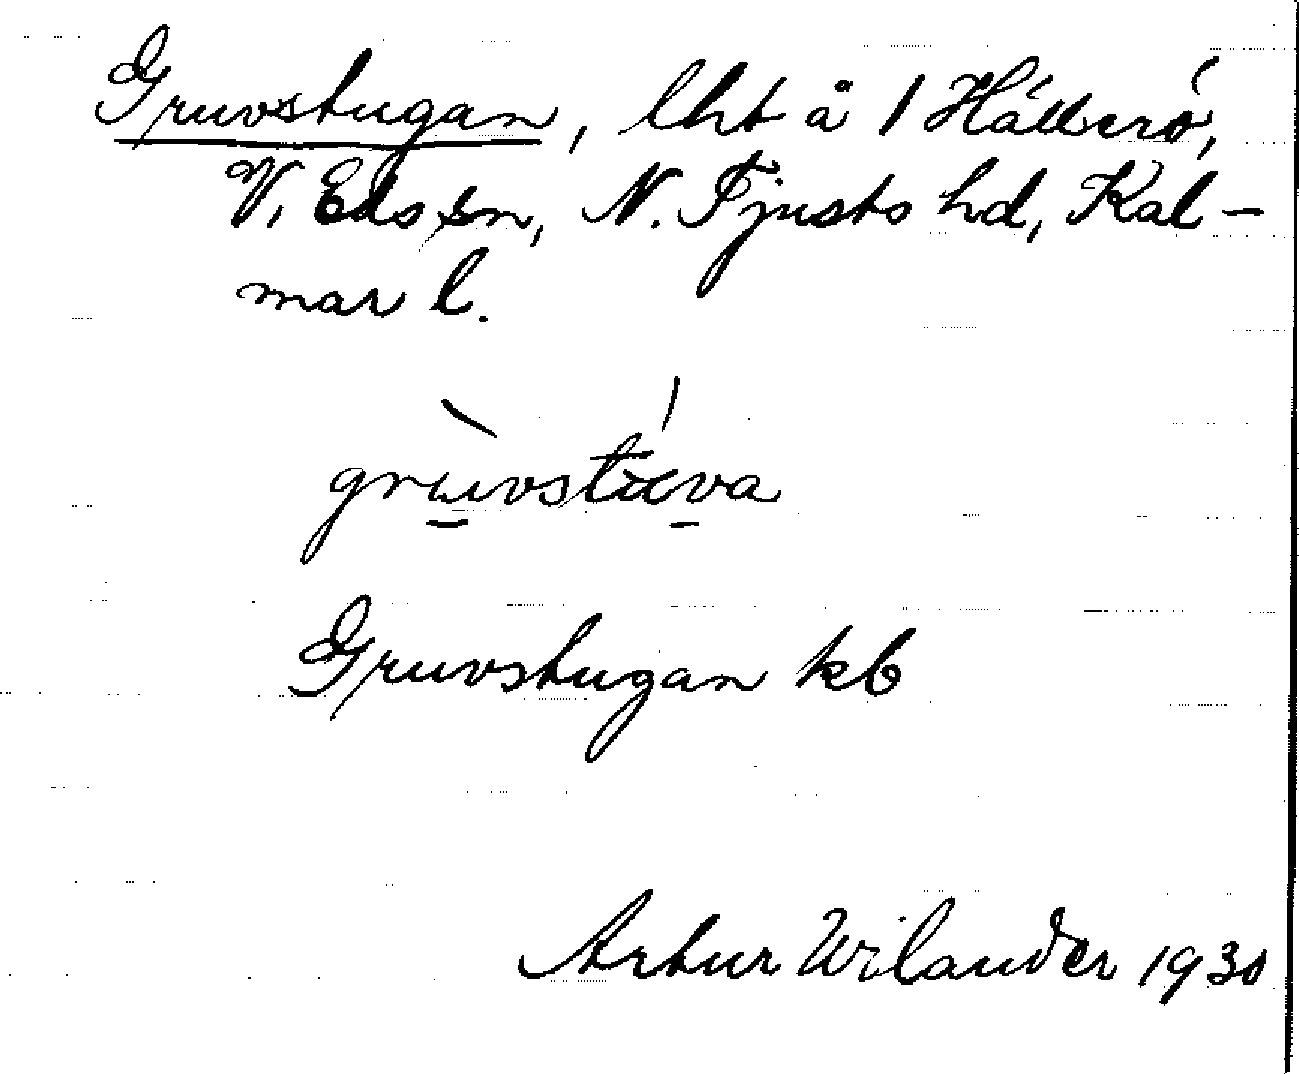 Gruvstugan, lht å 1 Hällerö,
V. Eds sn, N. Tjusts hd, Kal-
mar l.
grùvstúva
Gruvstugan kb
Artur Wilander 1930